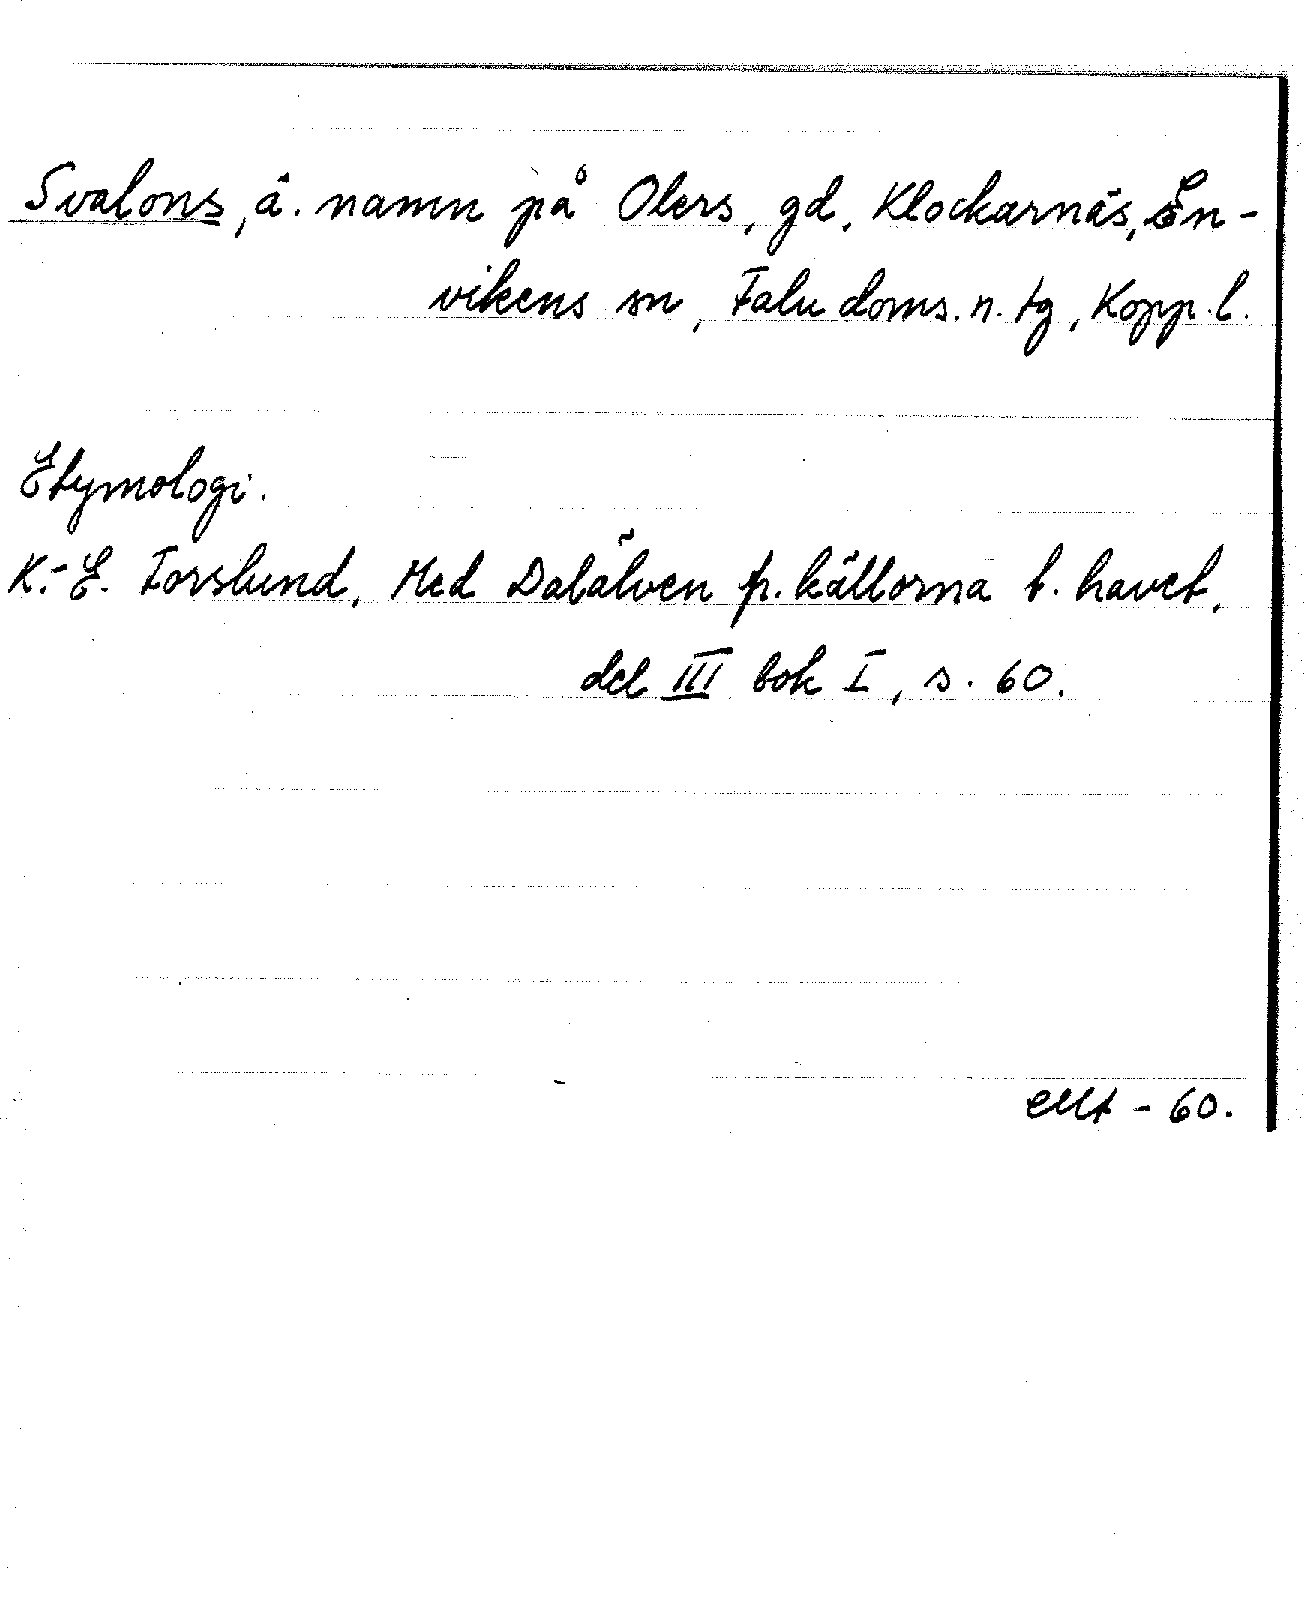 Svalons, ä. namn på Olers, gd, Klockarnäs, En-
vikens sn, Falu doms. n. tg, Kopp. l.
Etymologi.
K.-E. Forslund, Med Dalälven fr. källorna t. havet,
del III bok I, s. 60.
- 60.